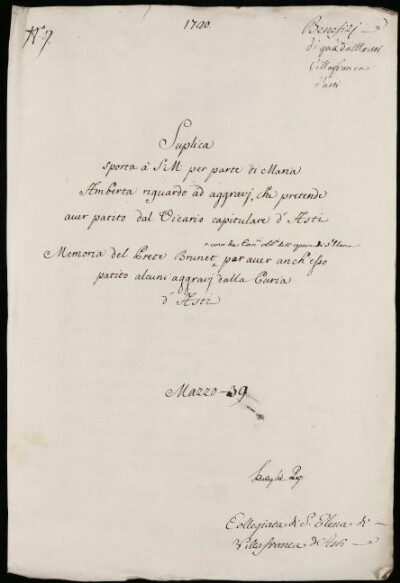 N.º 7.
1720.
Benefizj
di quà da Monti
Villafranca
d'Asti
Suplica
sporta à S.M. per parte di Maria
Amberta riguardo ad aggravj, che pretende
aver patito dal Vicario capitulare d'Asti
e una de Can.ci
Memoria del Prete Brunet per aver anch'esso
patito alcuni aggravj dalla Curia
d'Asti
Mazzo - 39
Collegiata di S. Elena di
Villafranca d'Asti